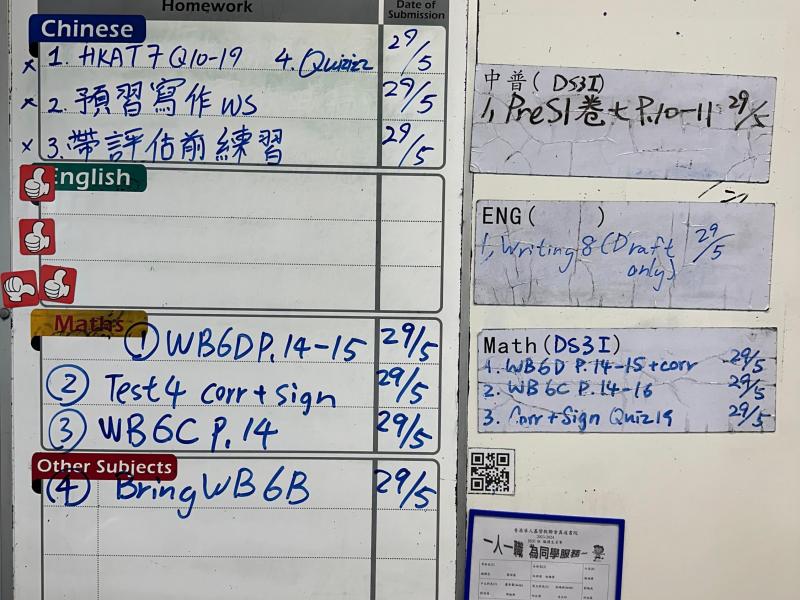 Homework
Date of Submission
Chinese
x 1. HKAT7 Q10-19 4. Quizizz 29/5
x 2. 預習寫作 WS 29/5
x 3. 帶評估前練習 29/5
English
Maths
① WB6D P.14-15 29/5
② Test4 corr + sign 29/5
③ WB6C P.14 29/5
Other Subjects
④ Bring WB6B 29/5
中普( DS3I)
1, PreS1卷七 P.10-11 29/5
ENG( )
1, Writing 8 (Draft only) 29/5
Math(DS3I)
1. WB6D P.14-15 + corr 29/5
2. WB 6C P.14-16 29/5
3. Corr + Sign Quiz 19 29/5
2023-2024
一人一職 為同學服務